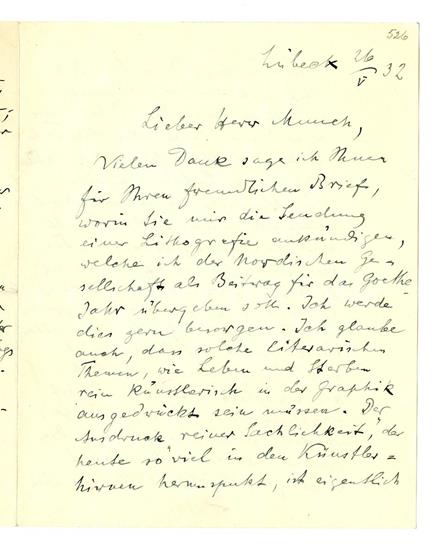 526
Lübeck 26/V 32
Lieber Herr Munch,
Vielen Dank sage ich Ihnen
für Ihren freundlichen Brief,
worin Sie mir die Sendung
einer Lithografie ankündigen,
welche ich der Nordischen Ge=
sellschaft als Beitrag für das Goethe
Jahr übergeben soll. Ich werde
dies gern besorgen. Ich glaube
auch, dass solche literarischen
Themen, wie Leben und Sterben
rein künstlerisch in der Graphik
ausgedrückt sein müssen. Der
Ausdruck "reiner Sachlichkeit," der
heute so viel in den Künstler=
hirnen herumspukt, ist eigentlich